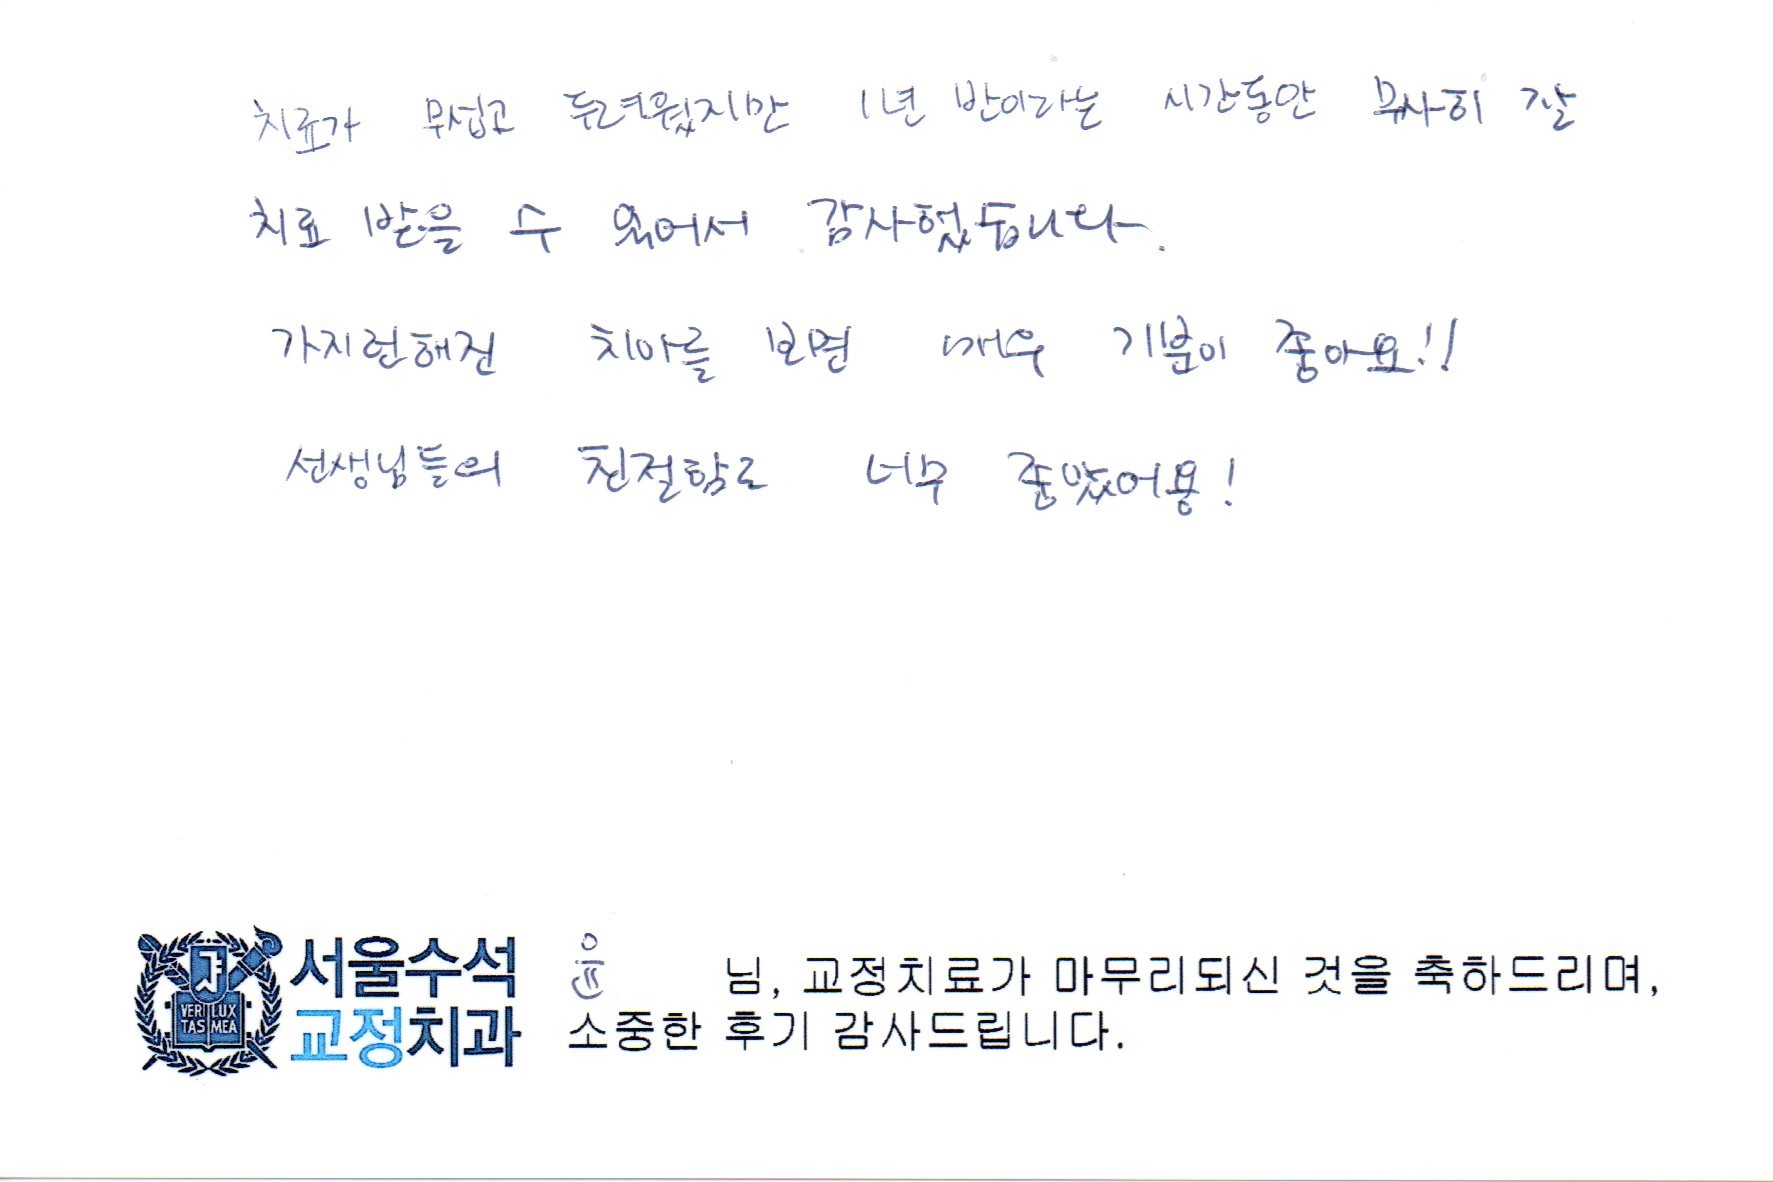 치료가 무섭고 두려웠지만 1년 반이라는 시간동안 무사히 잘
치료 받을 수 있어서 감사했습니다.
가지런해진 치아를 보면 매우 기분이 좋아요!!
선생님들의 친절함도 너무 좋았어용!
서울수석
교정치과
VERI LUX
TAS MEA
님, 교정치료가 마무리되신 것을 축하드리며,
소중한 후기 감사드립니다.